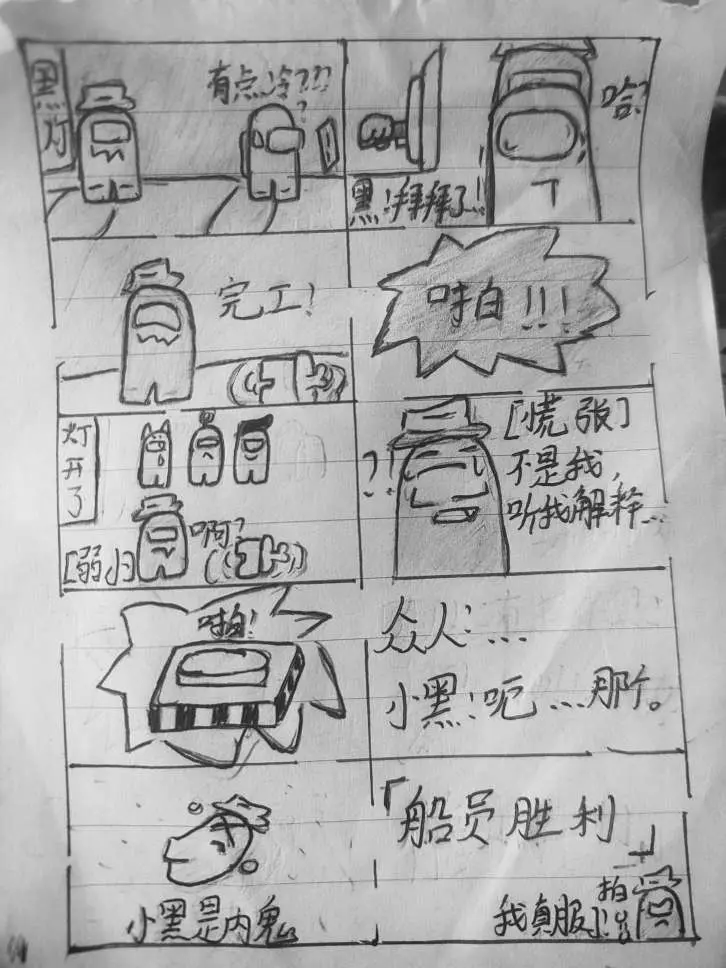 黑灯
有点冷???
哈?
黑:拜拜了!
完工!
啪!!!
灯开了
[弱小]
啊?
?!
[慌张]
不是我,
听我解释...
啪!
众人:...
小黑:呃....那个。
小黑是内鬼
「船员胜利」
我真服了